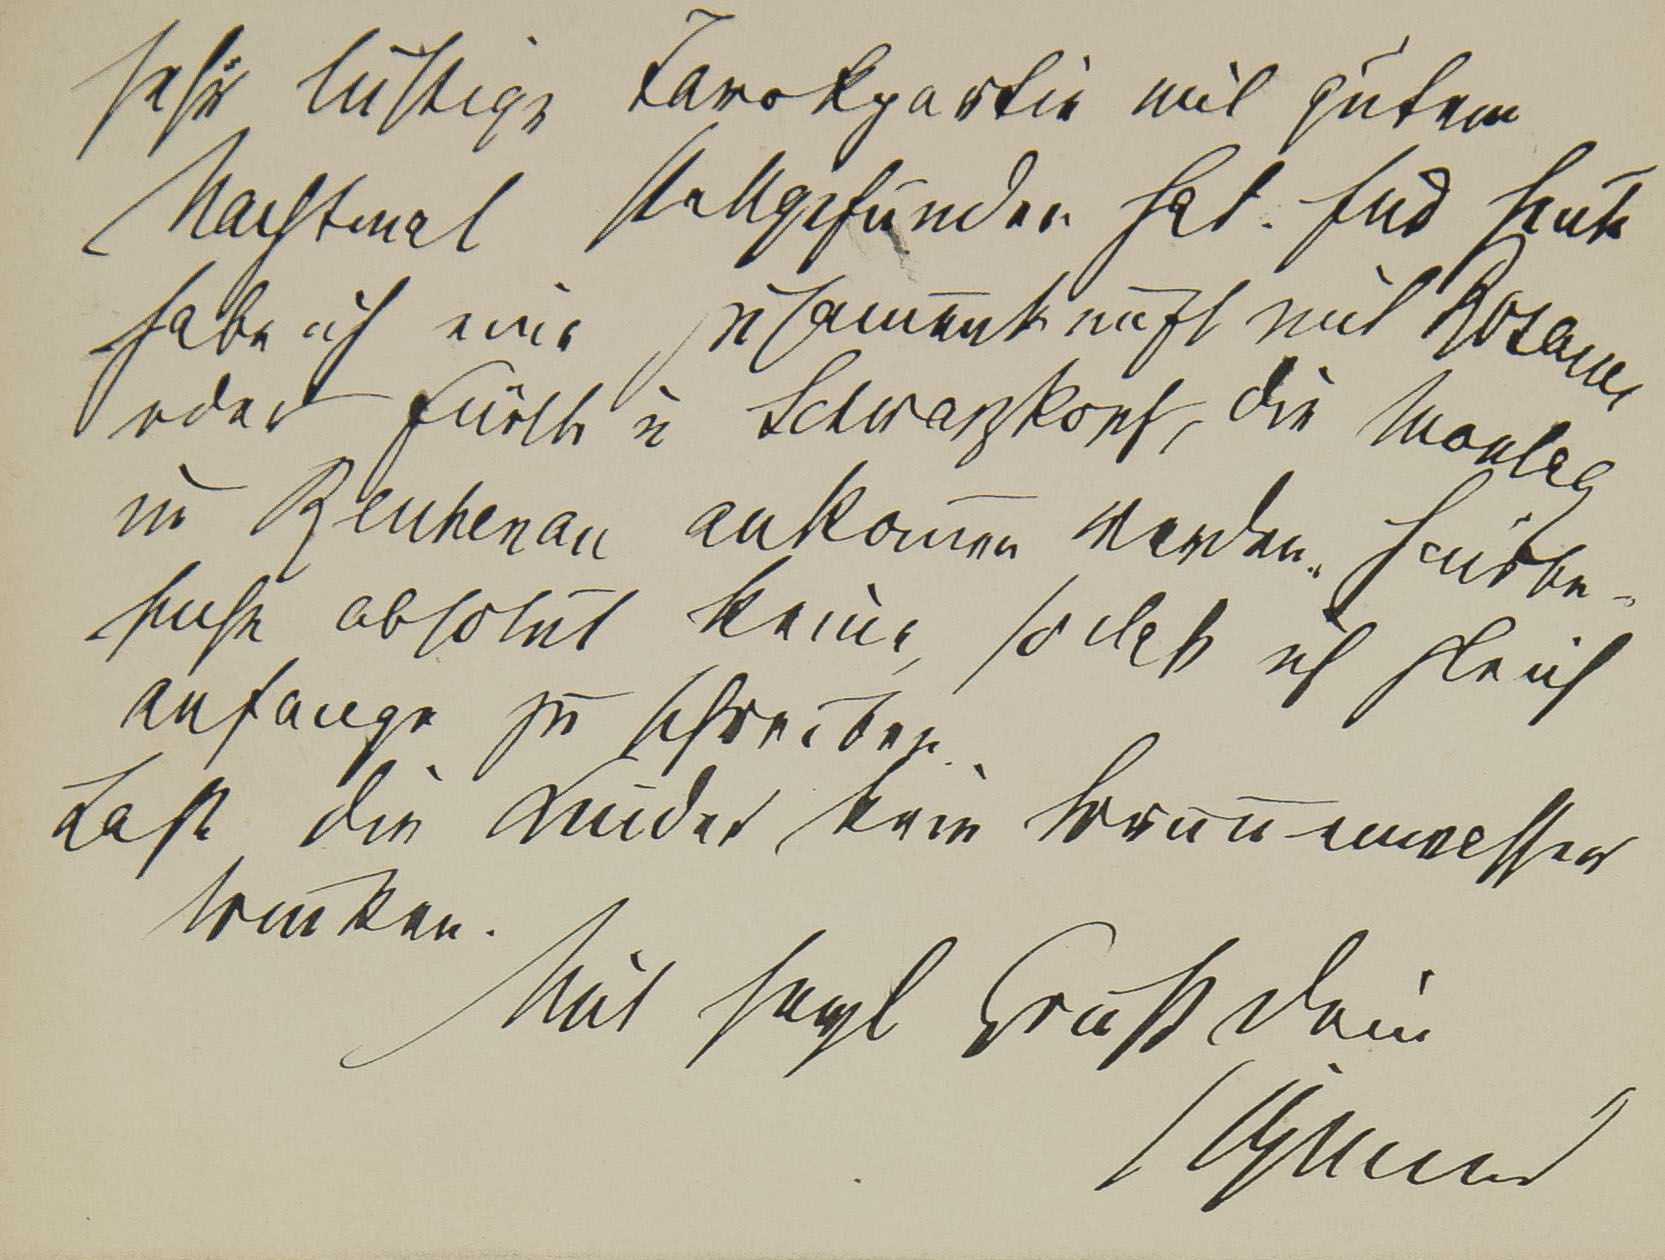 sehr lustige Tarokpartie mit gutem
Nachtmal stattgefunden hat. Für heute
habe ich eine Zusammenkunft mit Rosanes
oder Fürth u Schwarzkopf, die Montag
in Reichenau ankommen werden. Hausbe-
suche absolut keine, so daß ich gleich
anfange zu schreiben.
Laß die Kinder kein Brunnenwasser
trinken.
Mit herzl Gruß Dein
Sigmund